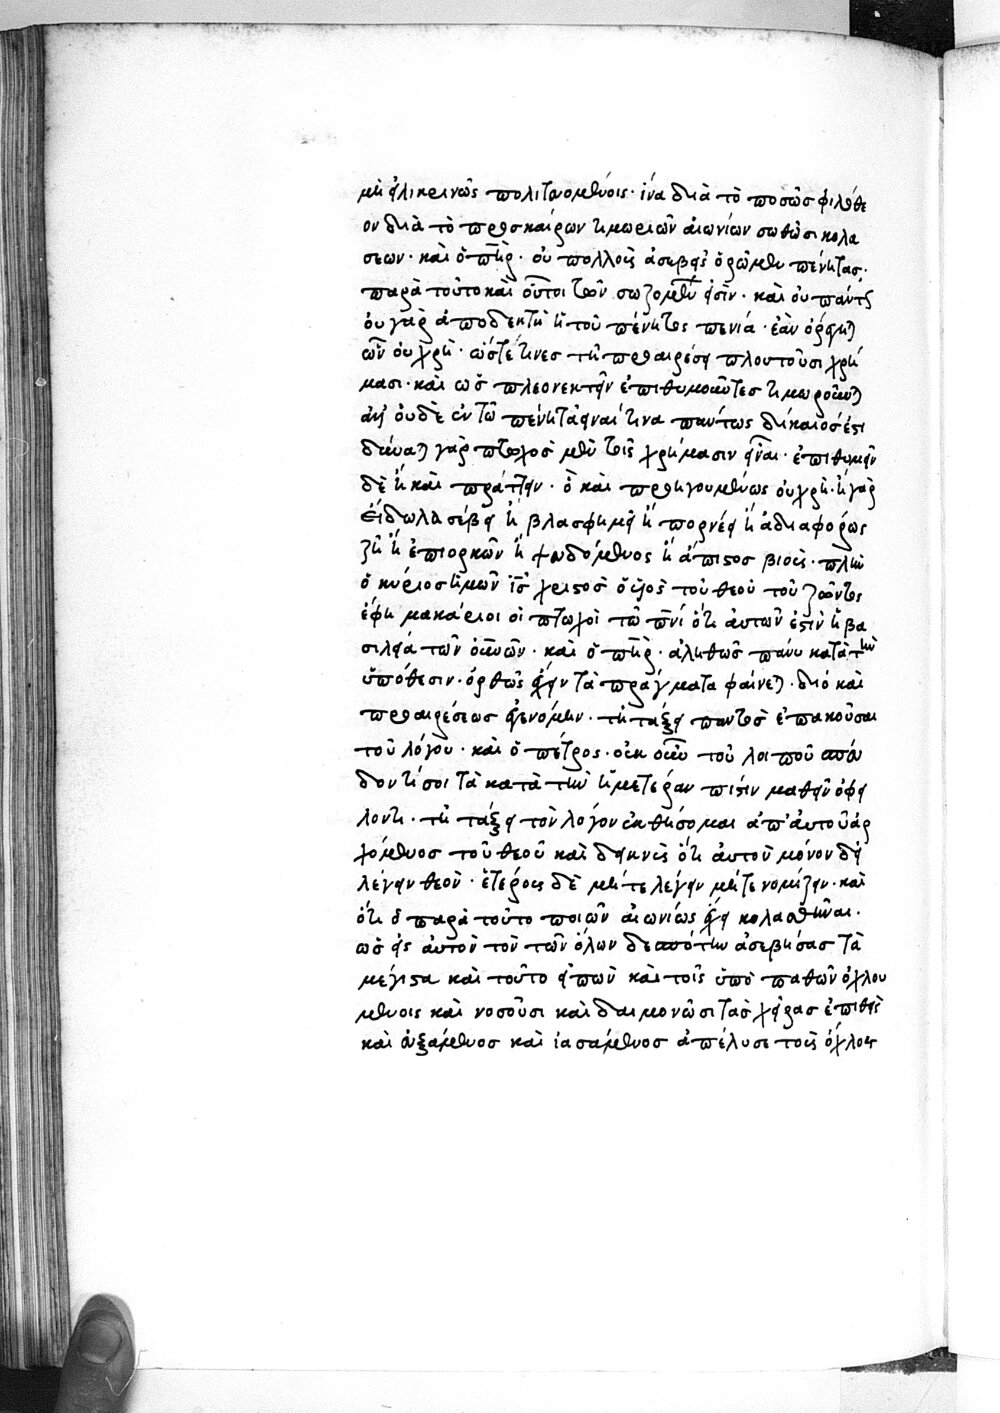 μὴ εἰλικρινῶς πολιτευομένοις· ἵνα διὰ τὸ ποσῶς φιλόθε
ον διὰ τὸ προσκαίρων τιμωριῶν αἰωνίων σωθῶσι κολα
σεων· καὶ ὁ πηρ· οὐ πολλοὶς ἀσεβεῖς ὁρῶμεν πένητας·
παρὰ τοῦτο καὶ οὗτοι τῶν σωζομένων εἰσὶν· καὶ οὐ πάντως
οὐ γὰρ ἀποδεκτὴ ἡ τοῦ πένητος πενία· ἐὰν ὀρέγηται
ὧν οὐ χρὴ· ὥστέ τινες τῇ προαιρέσει πλουτοῦσι χρή
μασι· καὶ ὡς πλεονεκτεῖν ἐπιθυμοῦντες τιμωροῦνται
οὐδὲ ἐν τῷ πένητα εἶναι τινα πάντως δίκαιός ἐστι
δύναται γὰρ πτωχὸς μὲν τοῖς χρήμασιν εἶναι· ἐπιθυμεῖν
δὲ ἢ καὶ πράττειν· ὃ καὶ προηγουμένως οὐ χρὴ· ἢ γὰρ
εἴδωλα σέβει ἢ βλασφημεῖ ἢ πορνέει ἢ ἀδιαφόρως
ζῇ ἢ ἐπιορκῶν ἢ ψευδόμενος ἢ ἀπίστος βιοὶς· πλὴν
ὁ κύριος ἡμῶν ις χριστὸς ὁ υἱὸς τοῦ θεοῦ τοῦ ζῶντος
ἔφη μακάριοι οἱ πτωχοὶ τῷ πνι ὅτι αὐτῶν ἐστὶν ἡ βα
σιλεία τῶν οὐνῶν· καὶ ὁ πηρ· ἀληθῶς πάνυ κατὰ τὴν
ὑπόθεσιν· ὀρθῶς ἔχειν τὰ πράγματα φαίνεται· διό καὶ
προαιρέσεως γενόμην· τῇ τάξει παντὸς ἐπακοῦσαι
τοῦ λόγου· καὶ ὁ πέτρος· οὐκ οὖν τοῦ λοιποῦ σπεύ
δοντί σοι τὰ κατὰ τὴν ἡμετέραν πίστιν μαθεῖν ὀφεί
λοντι· τῇ τάξει τὸν λόγον ἐκθήσομαι ἀπ' αὐτοῦ ἀρ
χόμενος τοῦ θεοῦ καὶ δεικνὺς ὅτι αὐτὸν μόνον δεῖ
λέγειν θεὸν· ἑτέρους δὲ μήτε λέγειν μήτε νομίζειν· καὶ
ὅτι ὁ παρὰ τοῦτο ποιῶν αἰωνίως ἔχει κολασθῆναι·
ὡς εἰς αὐτὸν τὸν τῶν ὅλων δεσπότην ἀσεβήσας τὰ
μέγιστα καὶ τοῦτο εἰπὼν καὶ τοῖς ὑπὸ παθῶν ὀχλου
μένοις καὶ νοσοῦσι καὶ δαιμονῶσι τὰς χεῖρας ἐπιθεὶς
καὶ εὐξάμενος καὶ ἰασάμενος ἀπέλυσε τοὺς ὄχλους